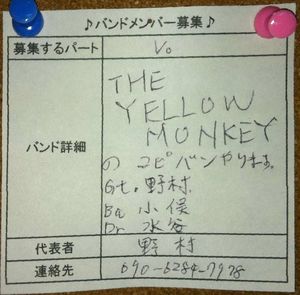 ♪バンドメンバー募集♪
募集するパート Vo
バンド詳細
THE
YELLOW
MONKEY
の コピバンやります。
Gt. 野村
Ba 小俣
Dr 水谷
代表者 野村
連絡先 090-6284-7978